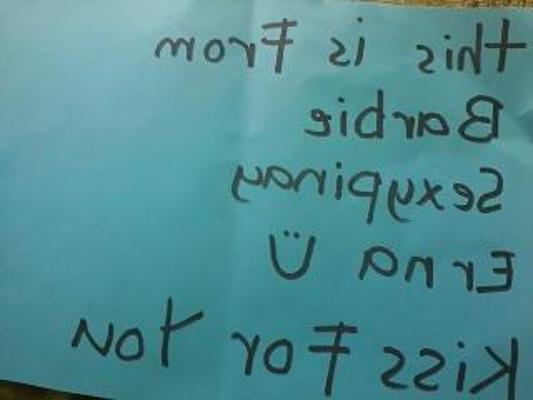 this is From
Barbie
Sexypinay
Erna Ü
Kiss For You